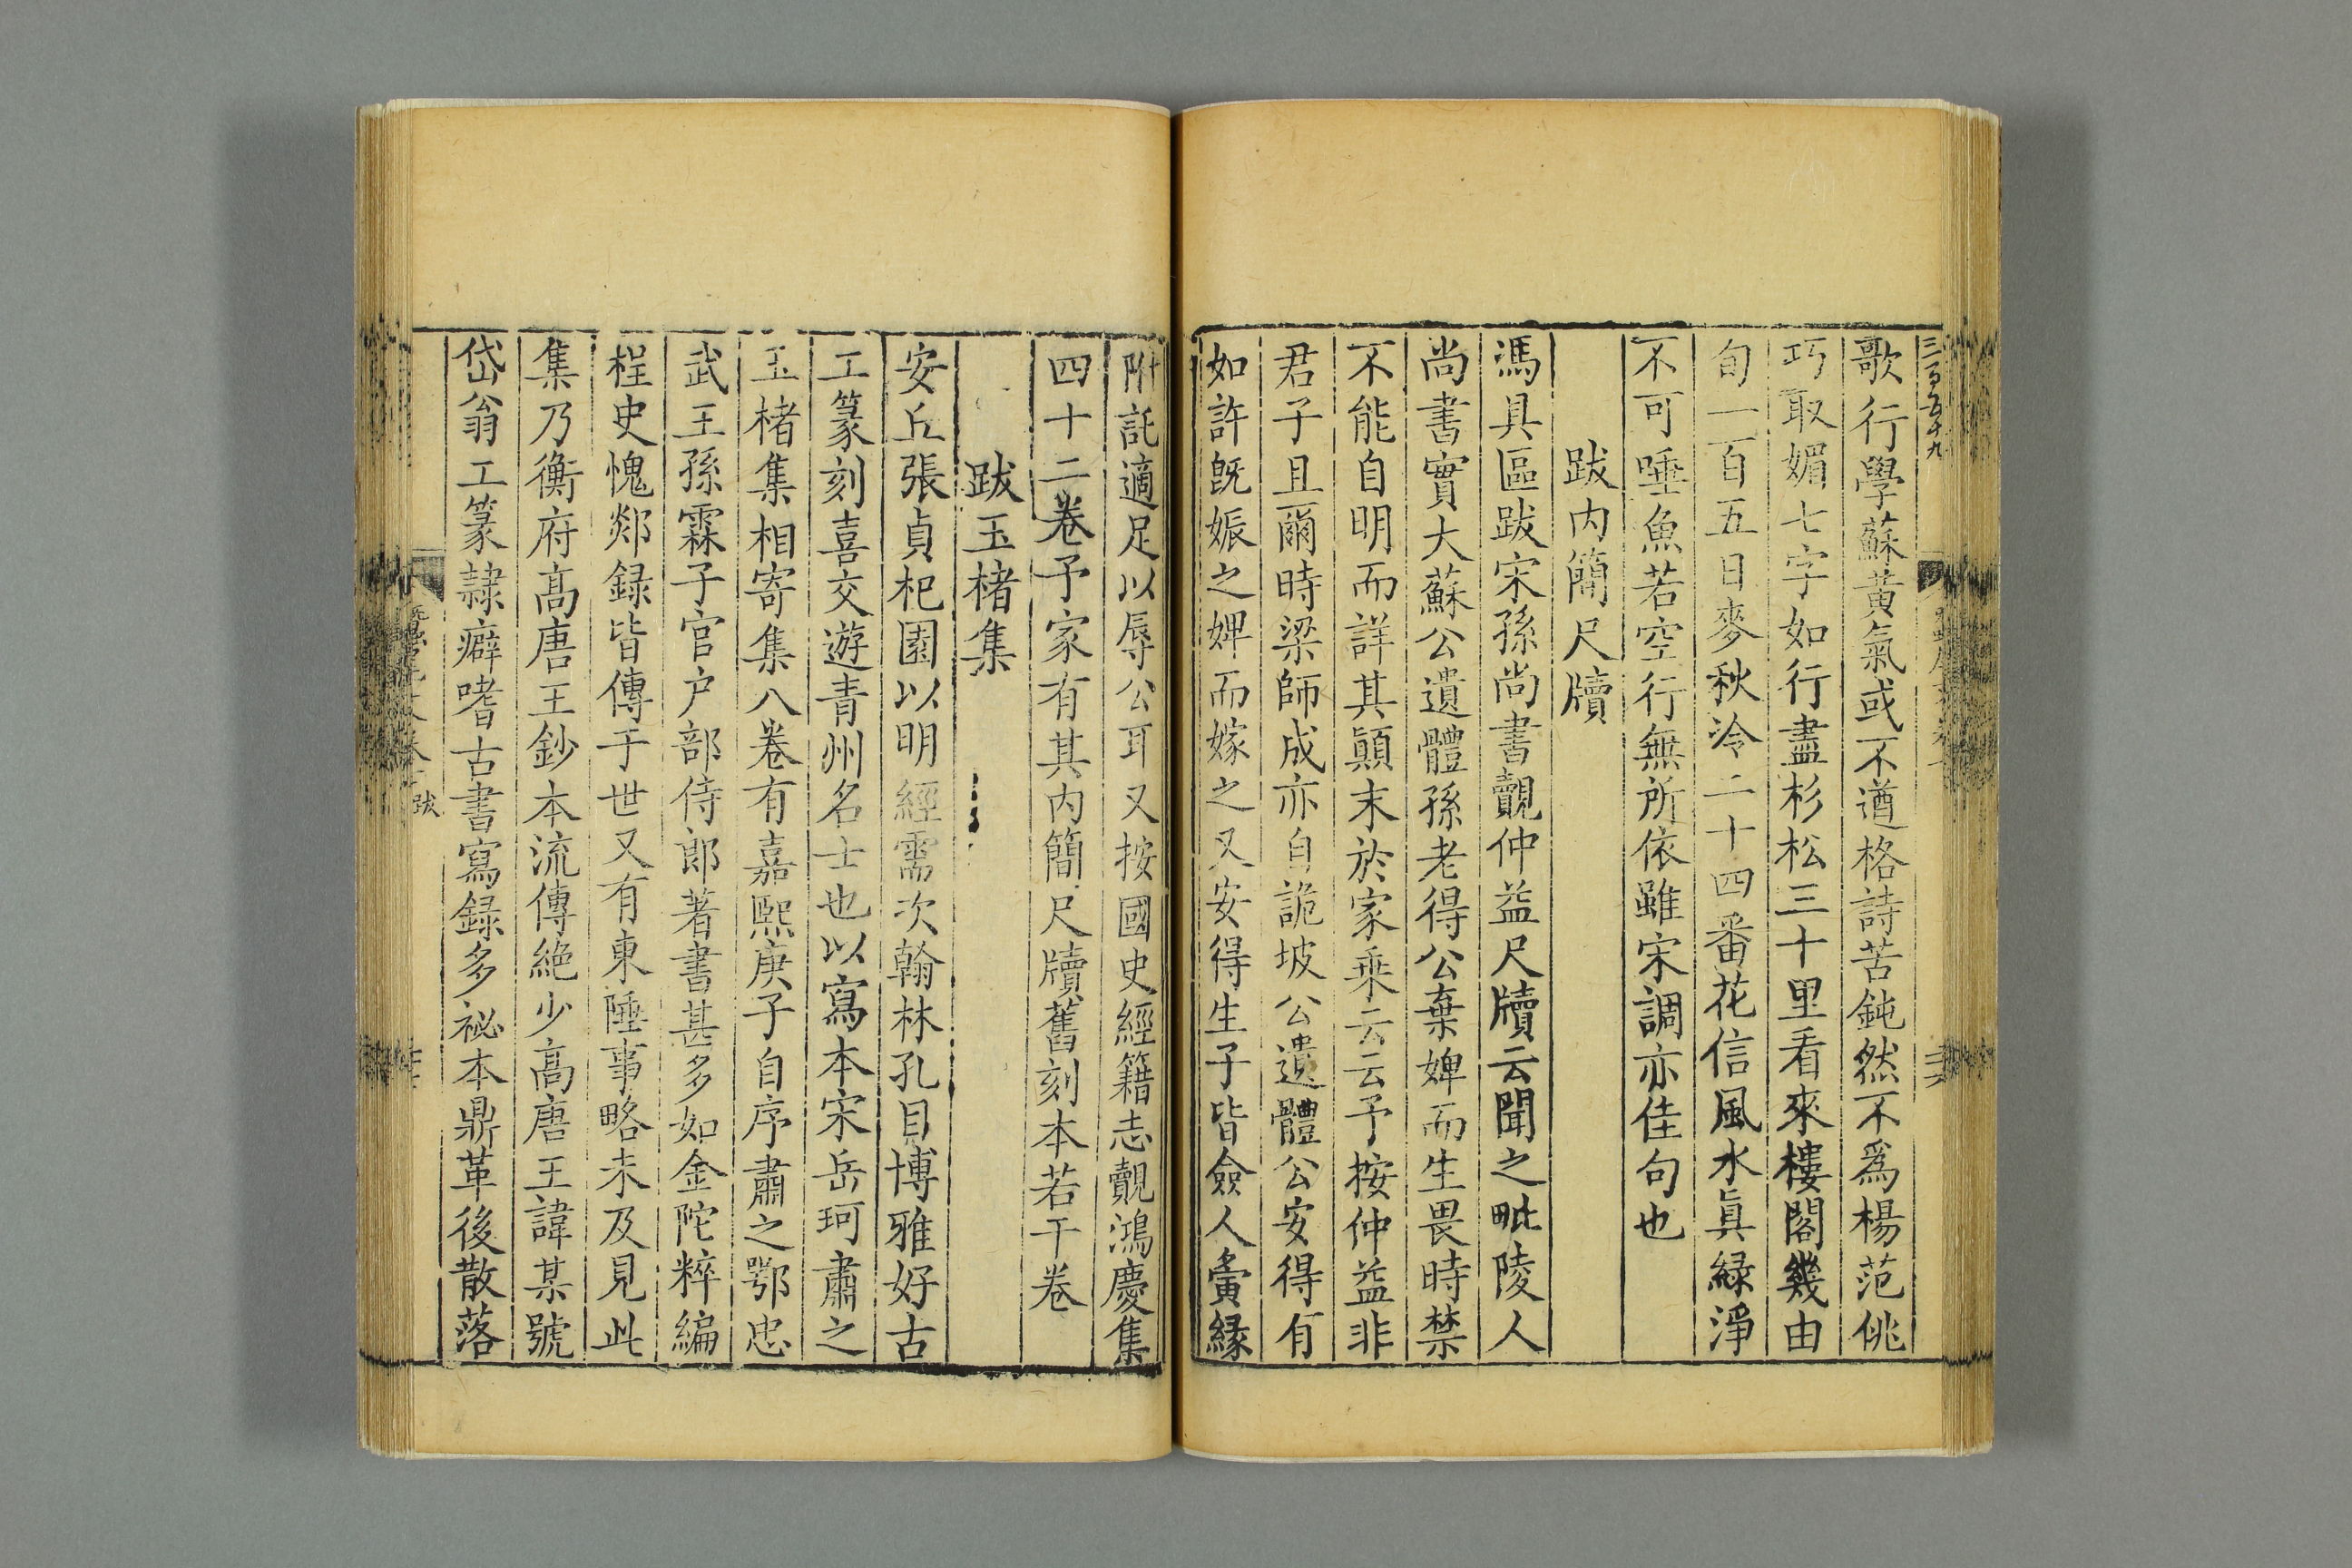 三百五十九
歌行學蘇黃氣或不遒格詩苦鈍然不爲楊范佻
巧取媚七字如行盡杉松三十里看來樓閣幾由
旬一百五日麥秋冷二十四番花信風水真綠淨
不可唾魚若空行無所依雖宋調亦佳句也
跋内簡尺牘
馮具區跋宋孫尚書覿仲益尺牘云聞之毗陵人
尚書實大蘇公遺體孫老得公棄婢而生畏時禁
不能自明而詳其顛末於家乘云云予按仲益非
君子且爾時梁師成亦自詭坡公遺體公安得有
如許既娠之婢而嫁之又安得生子皆僉人夤緣
附託適足以辱公耳又按國史經籍志覿鴻慶集
四十二卷予家有其内簡尺牘舊刻本若干卷
跋玉楮集
安丘張貞杞園以明經需次翰林孔目博雅好古
工篆刻喜交遊青州名士也以寫本宋岳珂肅之
玉楮集相寄集八卷有嘉熙庚子自序肅之鄂忠
武王孫霖子官户部侍郎著書甚多如金陀粹編
桯史愧郯録皆傳于世又有東陲事略未及見此
集乃衡府高唐王鈔本流傳絶少高唐王諱某號
岱翁工篆隷癖嗜古書寫録多祕本鼎革後散落
跋